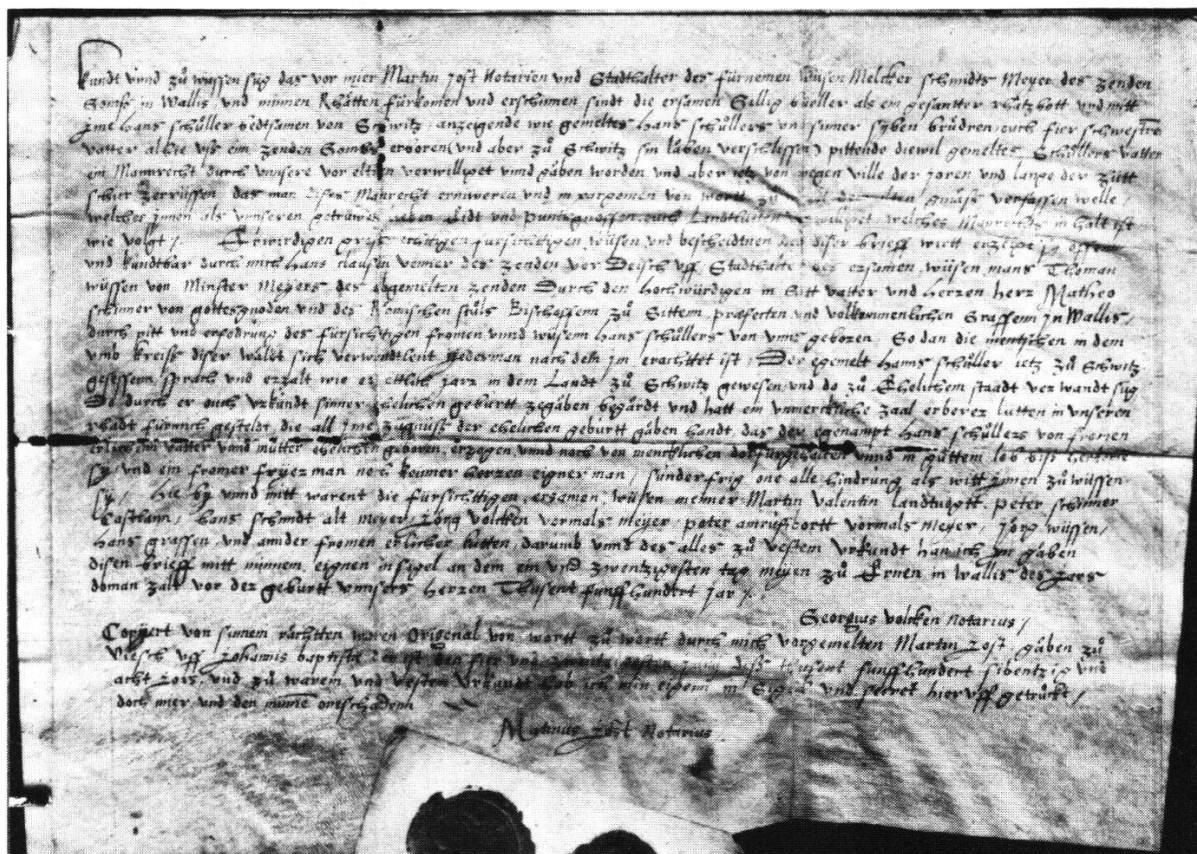 kundt unnd zů wyssen syg das vor mier Martin Jost Notarien und Stadthalter des fürnemen wysen Melcker schmidts Meyer des zenden
Goms in Wallis und minnen Rhätten fürkomen und erschinnen sindt die ersamen Gillig büeller als ein gesantter rhatzbott und mitt
jme Hans schüller bedtsamen von Schwitz, anzeigende wie gemeltes Hans schüllers und sinner syben brüdren, ouch fier schwestren
vatter alhie uss em zenden Goms erboren (und aber zů Schwitz sin läben verschlissen) pittende diewil gemeltes Schüllers vatten
ein Manrecht durch unsere vor eltten verwilliget unnd gäben worden und aber ietz von wegen ville der joren und lange der zütt
schier zerrüssen das man dises Manrecht ernüweren und in pargomen von wortt zů dem alten gmäss verfassen welle,
welches jnnen als unnseren getrüwen lieben Eidt und puntzgnossen, ouch Landtlütten verwilliget, welches Manrechts inhalt ist
wie volgt. Erwirdigen fürsichtigen, wüsen und bescheidtnen den diser brieff wirtt erzeigt syg offen
und kundtbar durch mich Hans Clausen venner des zenden von Deisch uff, Stadthalter des ersamen, wüsen, mans Thoman
wüssen von Minster Meyers des egemelten zenden Durch den hochwürdigen in Gott vatter und herren herr Matheo
schinner von gottesgnoden und des Römischen stůls Bischoffenn zů Sittem, präfecten und volkommenlichen Graffenn jn Wallis,
durch pitt und erfordrung des fürsichtigen fromen unnd wüsenn Hans schüllers von uns geboren. So dan die mentschen in dem
umb kreiss diser wäldt sich verwandlent yederman nach dem jm erachttet ist, Der egemelt Hanns schüller ietz zů Schwitz
gesessenn, sprach und erzält wie er ettlich jarr in dem Landt zů Schwitz gewesen und do zů Ehelichem staadt verwandt syg
Do durch er ouch urkundt sinner ehelichen geburtt zegäben begärdt und hatt ein unnerliche zaal erberer lütten in unseren
rhadt fürunss gestelt, die all jme zügnuss der ehelichen geburtt gäben handt, das der egenampt Hans schüllers von fromen
erlichem vatter und mutter ehelichen geboren, erzogen, unnd noch von mentklichen dorfürgehalten unnd in güttem lob biss
sy, und ein fromer fryer man noch keiner herren eigner man, sunder fryg one alle hindrung als witt jnnen zů wüssen
sy, Hie by unnd mitt warent die fürsichttigen, ersamen, wüsen menner Martin Valentin landtvogtt, peter schinner
Castlann, Hans schmidt alt meyer, Jörg volcken vormals meyer, peter amrüsshortt vormals meyer, Jörg wüssen,
Hans graffen, und annder fromen erlicher lütten, darumb unnd des alles zů vestem urkundt han ich jm gäben
disen brieff mitt minnen, eignen insigel an dem ein und zwentzigosten tag meyen zů Ernen in Wallis des jars
doman zalt vor der geburtt unnsers herren Thusent funffhundert jar.
Georgius volcken Notarius,
Copyert von sinnem rächtten waren original von wortt zů wortt durch mich vorgemelten Martin Jost, gäben zů
Viesch uff Johanis baptiste das ist den fier und zwentzigosten thusent funff hundert sibentzig und
acht Jors, und zů warem und vestem Urkundt hab ich min eigenn und secret hieruff getrückt,
doch mier und den minne onschaden
Martinus Jost Notarius.